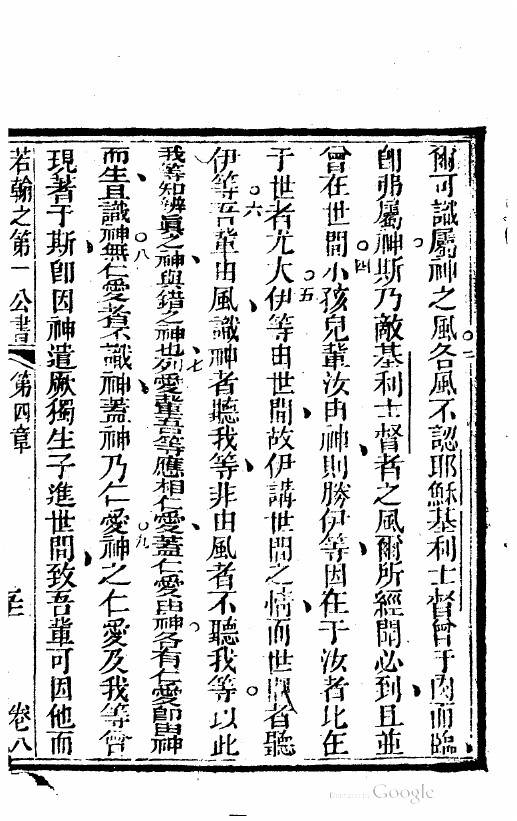 爾可識屬神之風各風不認耶穌基利士督曾于肉而臨
三
卽弗屬神斯乃敵基利士督者之風爾所經聞必到且並
四
曾在世間小孩兒輩汝由神則勝伊等因在于汝者比在
五
于世者尤大伊等由世間故伊講世間之情而世間者聽
六
伊等吾輩由風識神者聽我等非由風者不聽我等以此
我等知辨眞之神與錯之神也列愛輩吾等應相仁愛蓋仁愛由神各有仁愛卽由神
七
八
而生且識神無仁愛者不識神蓋神乃仁愛神之仁愛及我等曾
九
現著于斯卽因神遣厥獨生子進世間致吾輩可因他而
若翰之第一公書 第四章 卷八
Digitized by Google